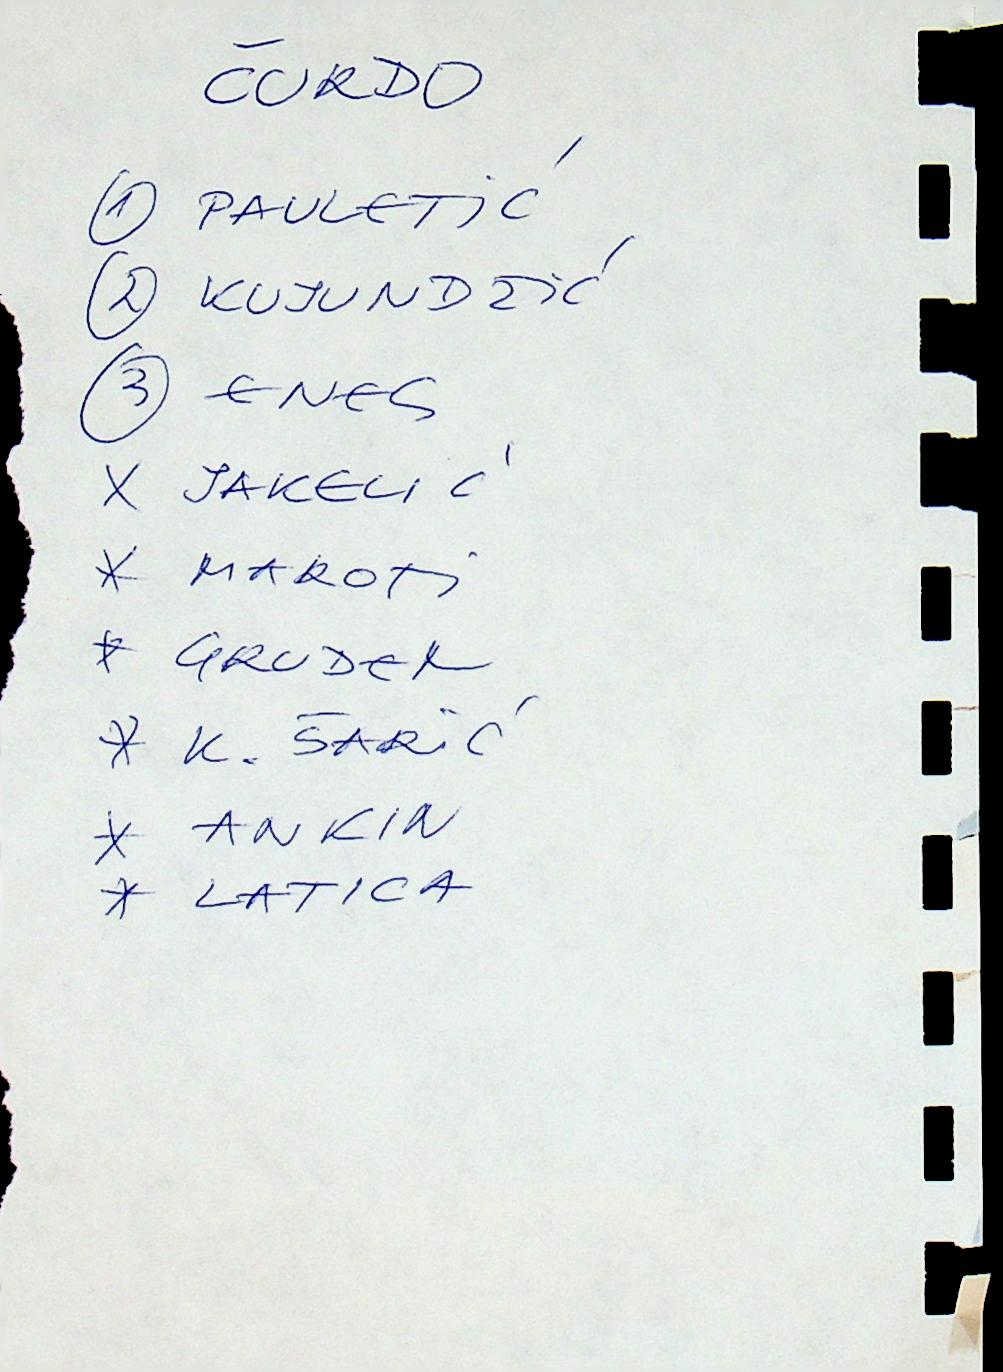 ČURDO
① PAULETIĆ
② KUJUNDZIĆ
③ ENES
X JAKELIĆ
* MAROTI
* GRUDEN
* K. ŠARIĆ
* ANKIN
* LATICA